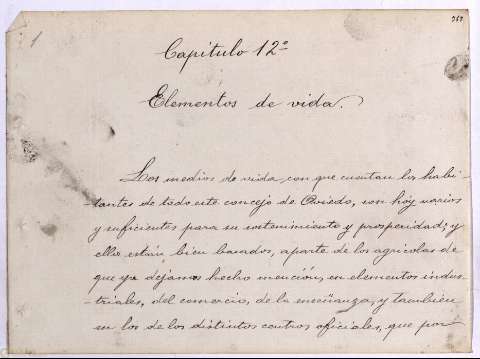 1
Capitulo 12º
Elementos de vida.
Los medios de vida con que cuentan los habi-
-tantes de todo este concejo de Oviedo, son hoy varios
y suficientes para su sostenimiento y prosperidad; y
ello están bien basados, aparte de los agricolas de
que ya dejamos hecho mención, en elementos indus-
-triales, del comercio, de la enseñanza, y tambien
en los de los distintos centros oficiales, que por